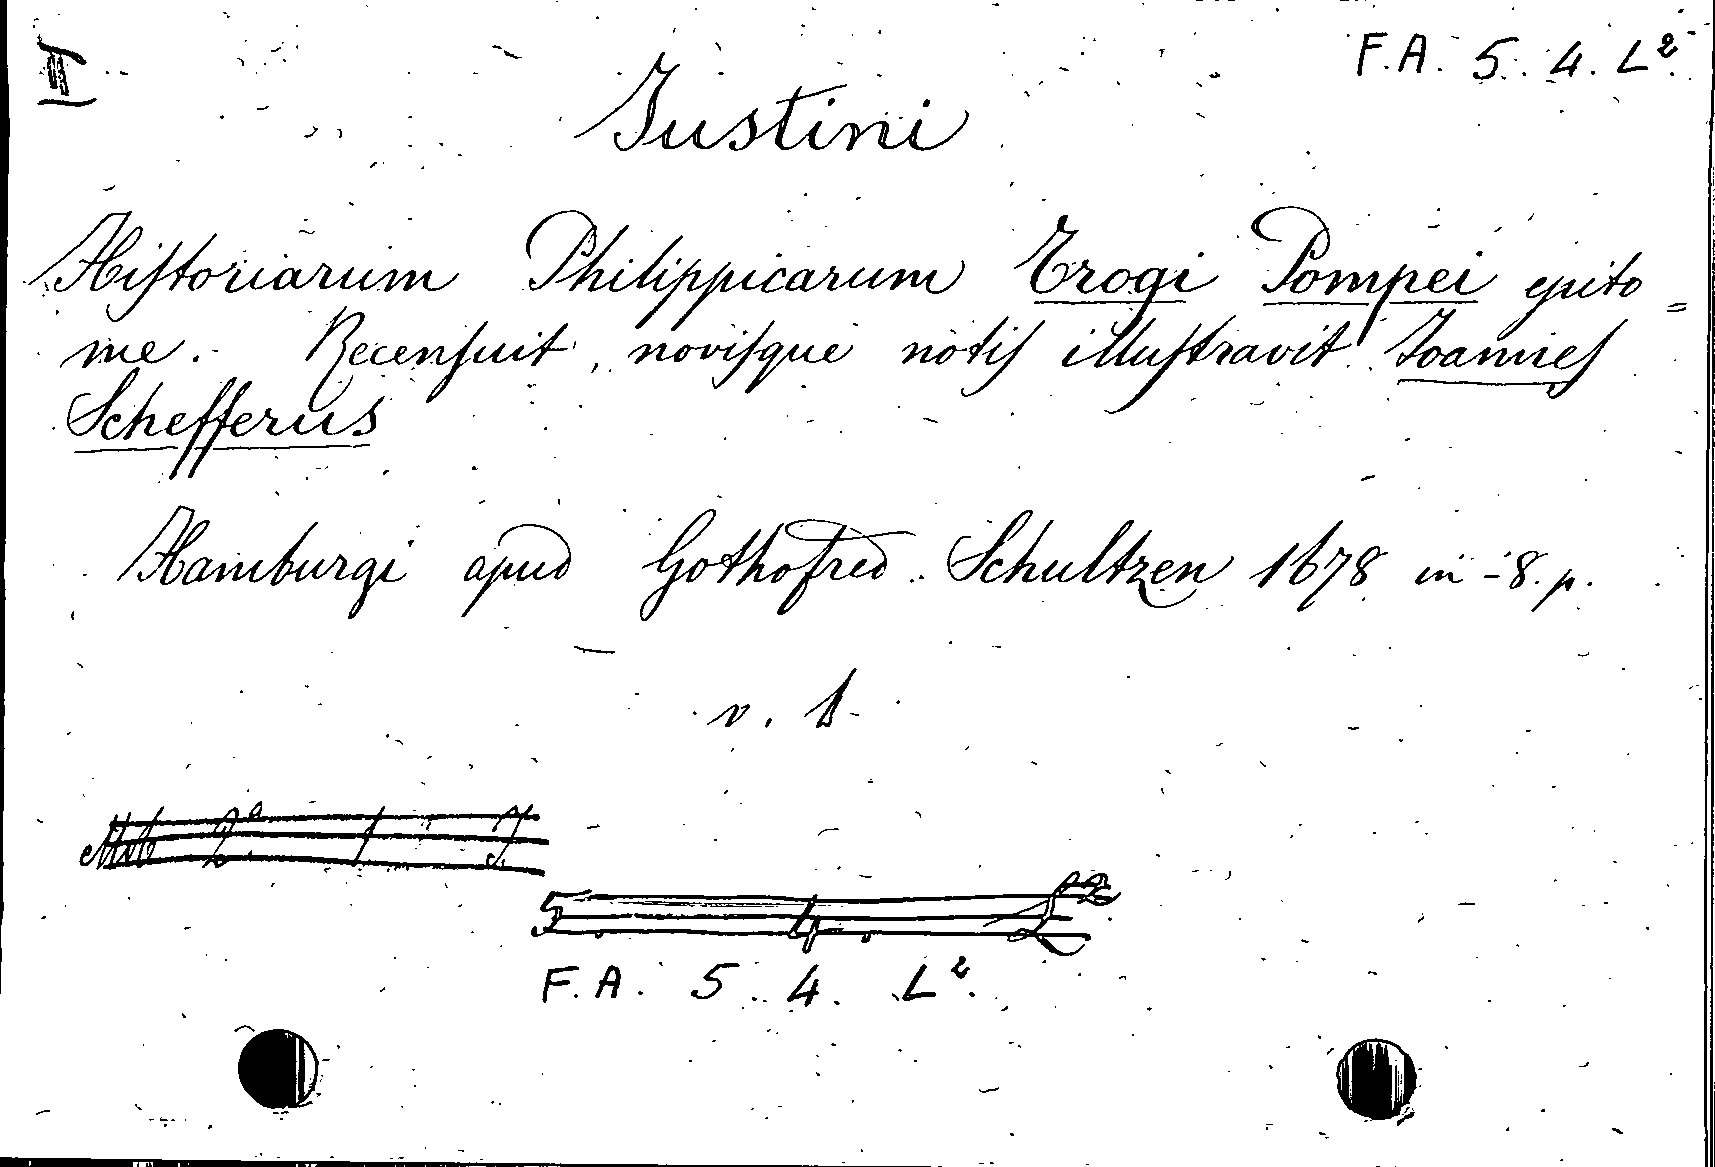 II
F. A. 5. 4. L².
Justini
Historiarum Philippicarum Trogi Pompei epito=
me. Recensuit, novisque notis illustravit Joannes
Schefferus
Hamburgi apud Gothofred. Schultzen 1678 in-8. p.
v. 1
5. 4. L²
F. A. 5. 4. L².